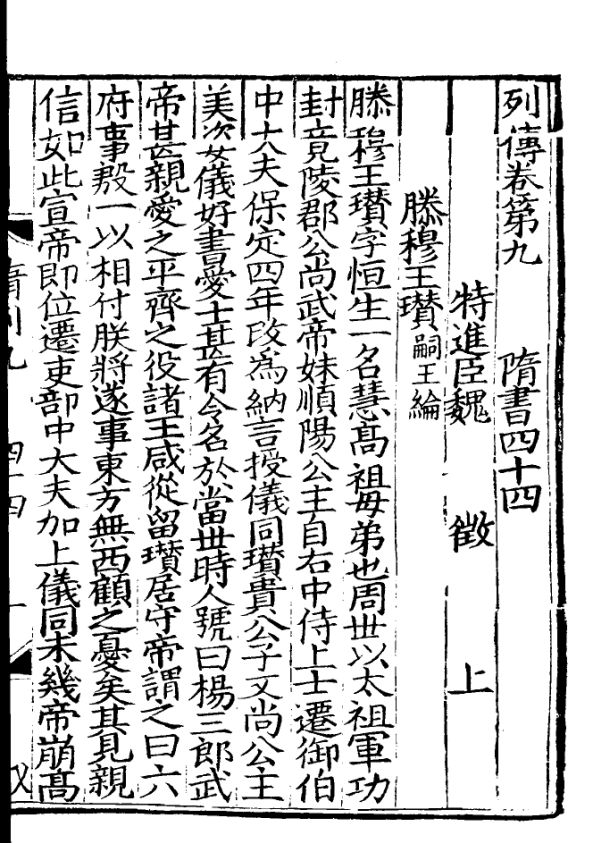 列傳卷第九 隋書四十四
特進臣魏 徵 上
滕穆王瓚嗣王綸
滕穆王瓚字恒生一名慧高祖母弟也周世以太祖軍功
封竟陵郡公尚武帝妹順陽公主自右中侍上士遷御伯
中大夫保定四年改為納言授儀同瓚貴公子又尚公主
美姿儀好書愛士甚有令名於當世時人號曰楊三郎武
帝甚親愛之平齊之役諸王咸從留瓚居守帝謂之曰六
府事殷一以相付朕將遂事東方無西顧之憂矣其見親
信如此宣帝即位遷吏部中大夫加上儀同未幾帝崩高